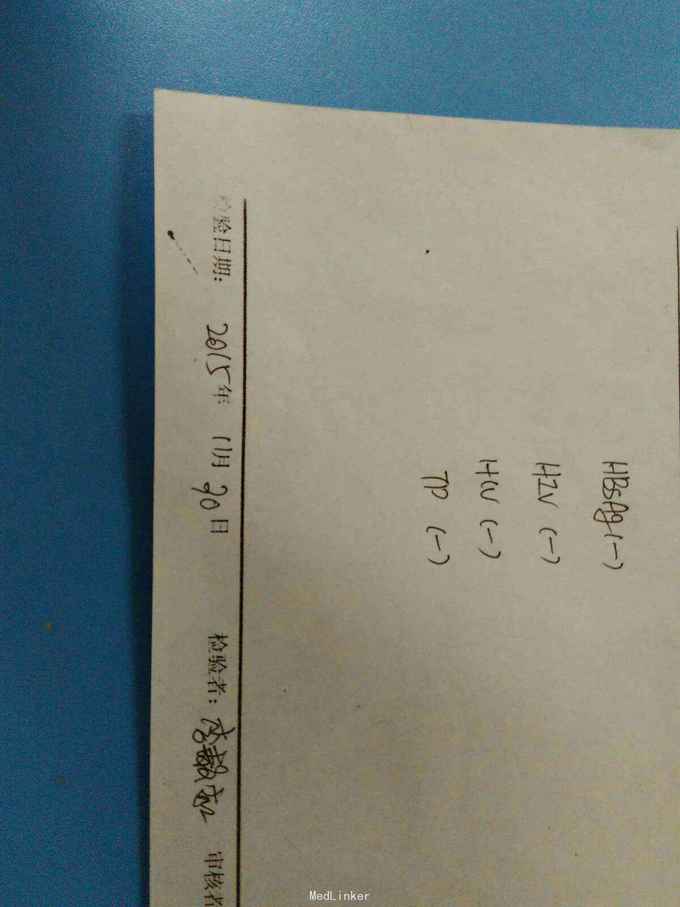 HBsAg (-)
HZV (-)
HIV (-)
TP (-)
检验日期: 2015年 11月 20日 检验者: 审核者
MedLinker